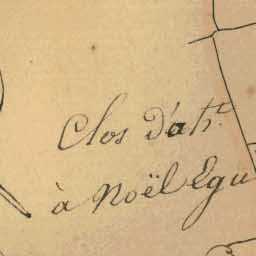 Clos d'ah.t
à Noël Egu